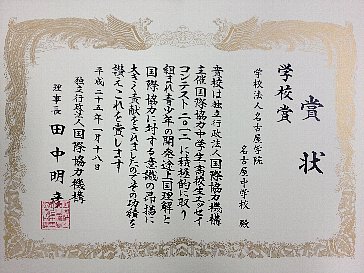 賞状
学校賞
学校法人名古屋学院
名古屋中学校 殿
貴校は独立行政法人国際協力機構
主催国際協力中学生・高校生エッセイ
コンテスト二〇一二に積極的に取り
組まれ青少年の開発途上国理解と
国際協力に対する意識の昂揚に
大きく貢献をされましたのでその功績を
讃えこれを賞します
平成二十五年一月十八日
独立行政法人国際協力機構
理事長 田中明彦